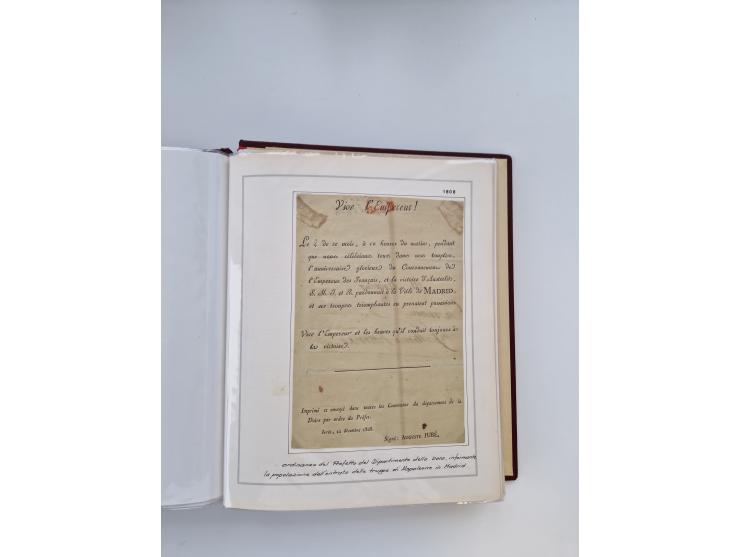 1808
Vive l'Empereur!
Le 4 de ce mois, à 10 heures du matin, pendant
que nous célébrions tous dans nos temples,
l'anniversaire glorieux du Couronnement de
l'Empereur des Français, et la victoire d'Austerlitz,
S. M. I. et R. pardonnait à la Ville de MADRID,
et ses troupes triomphantes en prenaient possession
Vive l'Empereur et les braves qu'il conduit toujours à
la victoire.
Imprimé et envoyé dans toutes les Communes du département de la
Doire par ordre du Préfet.
Ivrée, 12 décembre 1808.
Signé: AUGUSTE JUBÉ.
ordinanza del Prefetto del Dipartimento della Dora, informante
la popolazione dell'entrata delle truppe di Napoleone in Madrid